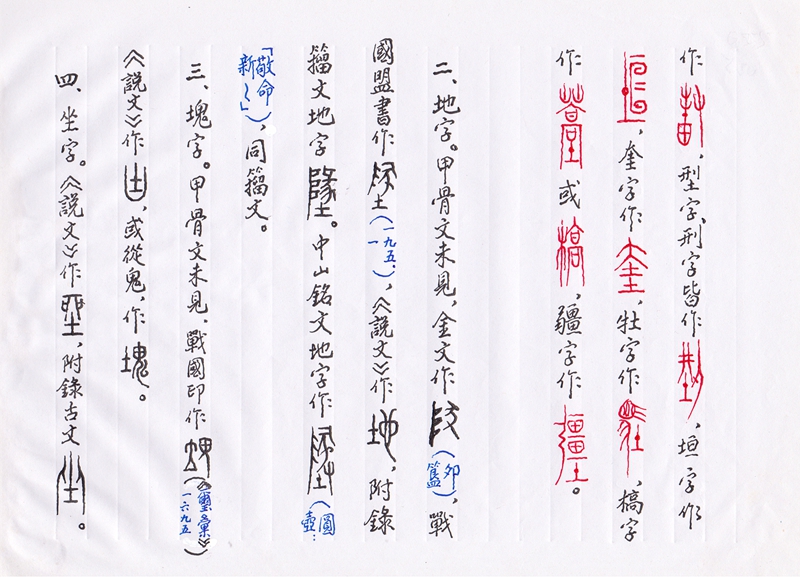 作，型字、刑字皆作，垣字作
，奎字作，牡字作，槁字
作或，疆字作。
二、地字。甲骨文未見，金文作（夘簋），戰
國盟書作（一九五、一），《說文》作地，附錄
籀文地字。中山銘文地字作（圓壺：
「敬命新〻」），同籀文。
三、塊字。甲骨文未見、戰國印作（《璽彙》一六九五）
《說文》作，或從鬼，作塊。
四、坐字。《說文》作，附錄古文。